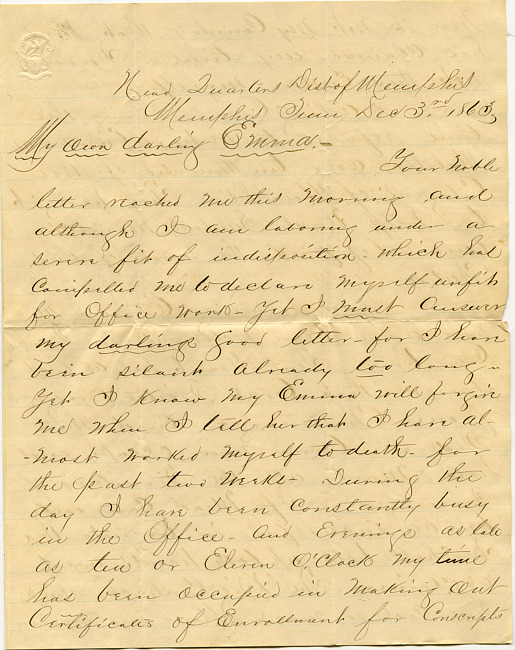 Head Quarters Dist of Memphis
Memphis Tenn Dec 3rd, 1863,
My own darling Emma.-
Your noble
letter reached me this morning and
although I am laboring under a
severe fit of indisposition - which has
compelled me to declare myself unfit
for Office work - Yet I must answer
my darlings good letter - for I have
been silant already too long -
Yet I know my Emma will forgive
me when I tell her that I have al-
-most worked myself to death - for
the past two weeks - During the
day I have been constantly busy
in the Office - and Evenings as late
as ten or Eleven O'Clock my time
has been occupied in making out
Certificates of Enrollment for Conscripts